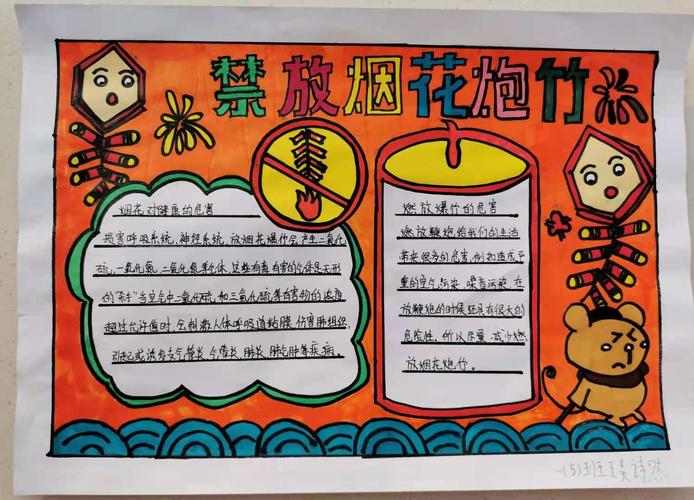 禁放烟花炮竹
烟花对健康的危害
损害呼吸系统、神经系统,放烟花爆竹会产生二氧化
硫,一氧化氮,二氧化氮等气体,这些有毒有害的气体是无形
的"杀手"当空气中二氧化硫,和三氧化硫等有害物的浓度
超过允许值时,会刺激人体呼吸道粘膜,伤害肺组织,
引起或诱发支气管炎,气管炎,肺炎,肺气肿等疾病。
燃放爆竹的危害
燃放鞭炮给我们的生活
带来很多的危害,例如造成严
重的空气污染,噪音污染,在
放鞭炮的时候还具有很大的
危险性,所以尽量减少燃
放烟花炮竹。
一(5)班王昊诗然